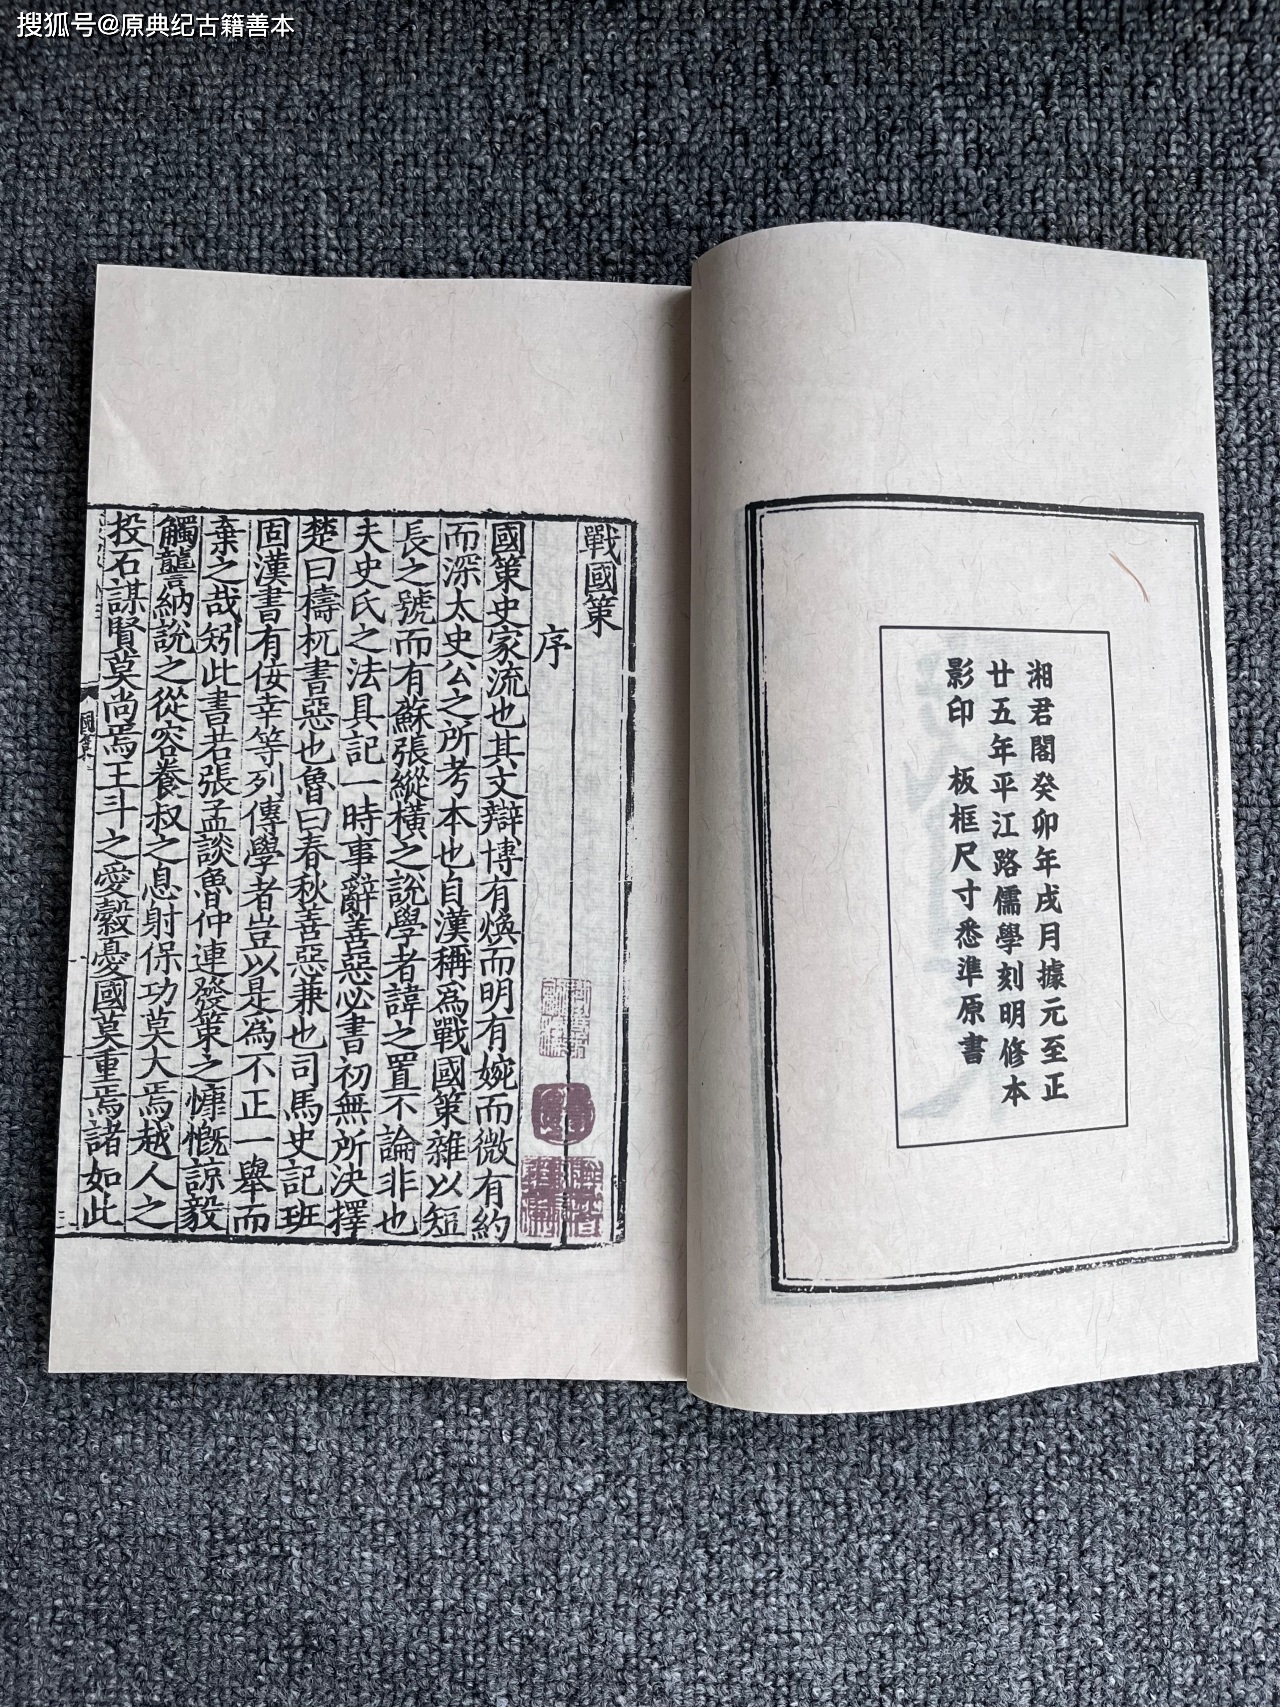 搜狐号@原典纪古籍善本
湘君閣癸卯年戌月據元至正
廿五年平江路儒學刻明修本
影印　板框尺寸悉準原書
戰國策
序
國策史家流也其文辯博有煥而明有婉而微有約
而深太史公之所考本也自漢稱爲戰國策雜以短
長之號而有蘇張縱橫之說學者諱之置不論非也
夫史氏之法具記一時事辭善惡必書初無所決擇
楚曰檮杌書惡也魯曰春秋善惡兼也司馬史記班
固漢書有佞幸等列傳學者豈以是為不正一舉而
棄之哉矧此書若張孟談魯仲連發策之慷慨諒毅
觸讋納說之從容養叔之息射保功莫大焉越人之
投石謀賢莫尚焉王斗之愛縠憂國莫重焉諸如此